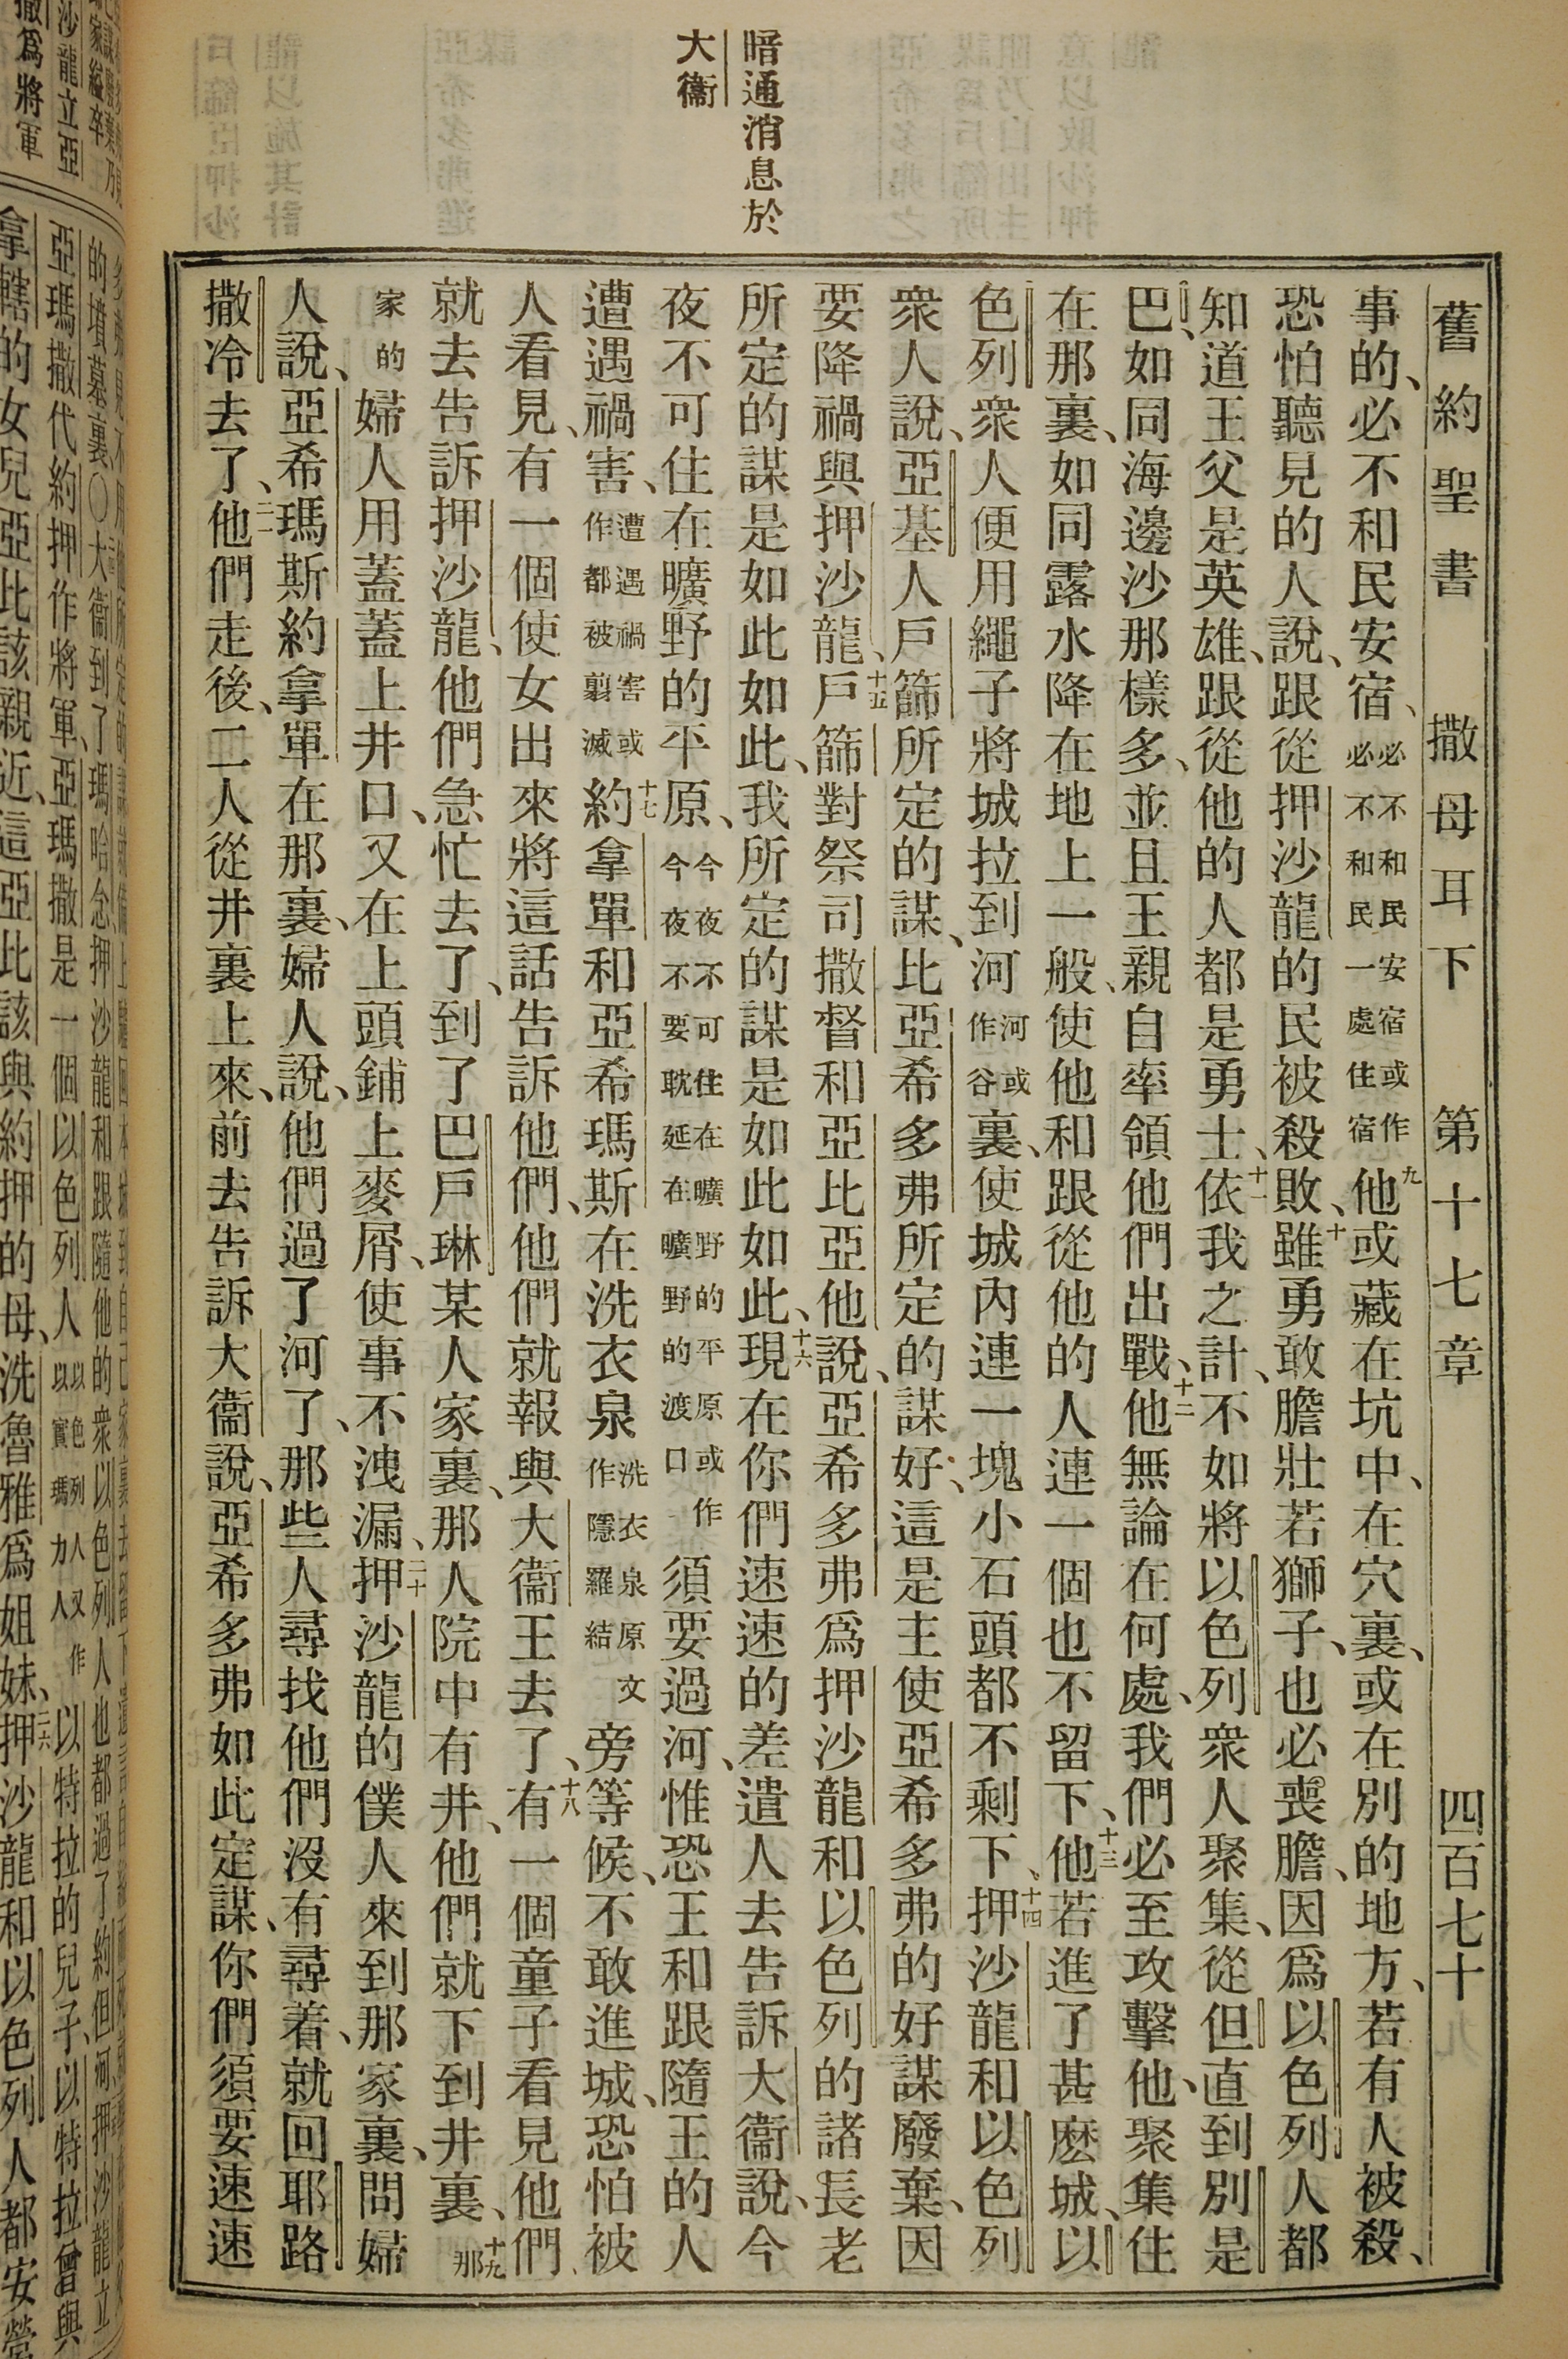 暗通消息於
大衞
舊約聖書 撒母耳下 第十七章 四百七十
事的、必不和民安宿、必不和民安宿或作必不和民一處住宿九他或藏在坑中、在穴裏、或在別的地方、若有人被殺、
恐怕聽見的人說、跟從押沙龍的民被殺敗、十雖勇敢膽壯若獅子、也必喪膽、因爲以色列人都
知道王父是英雄、跟從他的人都是勇士、十一依我之計、不如將以色列衆人聚集、從但直到別是
巴、如同海邊沙那樣多、並且王親自率領他們出戰、十二他無論在何處、我們必至攻擊他、聚集住
在那裏、如同露水降在地上一般、使他和跟從他的人連一個也不留下、十三他若進了甚麽城、以
色列衆人便用繩子將城拉到河河或作谷裏、使城內連一塊小石頭都不剩下、十四押沙龍和以色列
衆人說、亞基人戶篩所定的謀、比亞希多弗所定的謀好、這是主使亞希多弗的好謀廢棄、因
要降禍與押沙龍、十五戶篩對祭司撒督和亞比亞他說、亞希多弗爲押沙龍和以色列的諸長老
所定的謀是如此如此、我所定的謀是如此如此、十六現在你們速速的差遣人去告訴大衞說、今
夜不可住在曠野的平原、今夜不可住在曠野的平原或作今夜不要耽延在曠野的渡口須要過河、惟恐王和跟隨王的人
遭遇禍害、遭遇禍害或作都被翦滅十七約拿單和亞希瑪斯在洗衣泉洗衣泉原文作隱羅結旁等候、不敢進城、恐怕被
人看見、有一個使女出來將這話告訴他們、他們就報與大衞王去了、十八有一個童子看見他們、
就去告訴押沙龍、他們急忙去了、到了巴戶琳某人家裏、那人院中有井、他們就下到井裏、十九那
家的婦人用蓋蓋上井口、又在上頭鋪上麥屑、使事不洩漏、二十押沙龍的僕人來到那家裏、問婦
人說、亞希瑪斯約拿單在那裏、婦人說、他們過了河了、那些人尋找他們沒有尋着、就回耶路
撒冷去了、二一他們走後、二人從井裏上來、前去告訴大衞說、亞希多弗如此定謀、你們須要速速
沙龍立亞
撒爲將軍
亞瑪撒代約押作將軍、亞瑪撒是一個以色列人以色列人又作以實瑪力人以特拉的兒子、以特拉曾與
拿轄的女兒亞比該親近、這亞比該與約押的母、洗魯雅爲姐妹、二六押沙龍和以色列人都安營